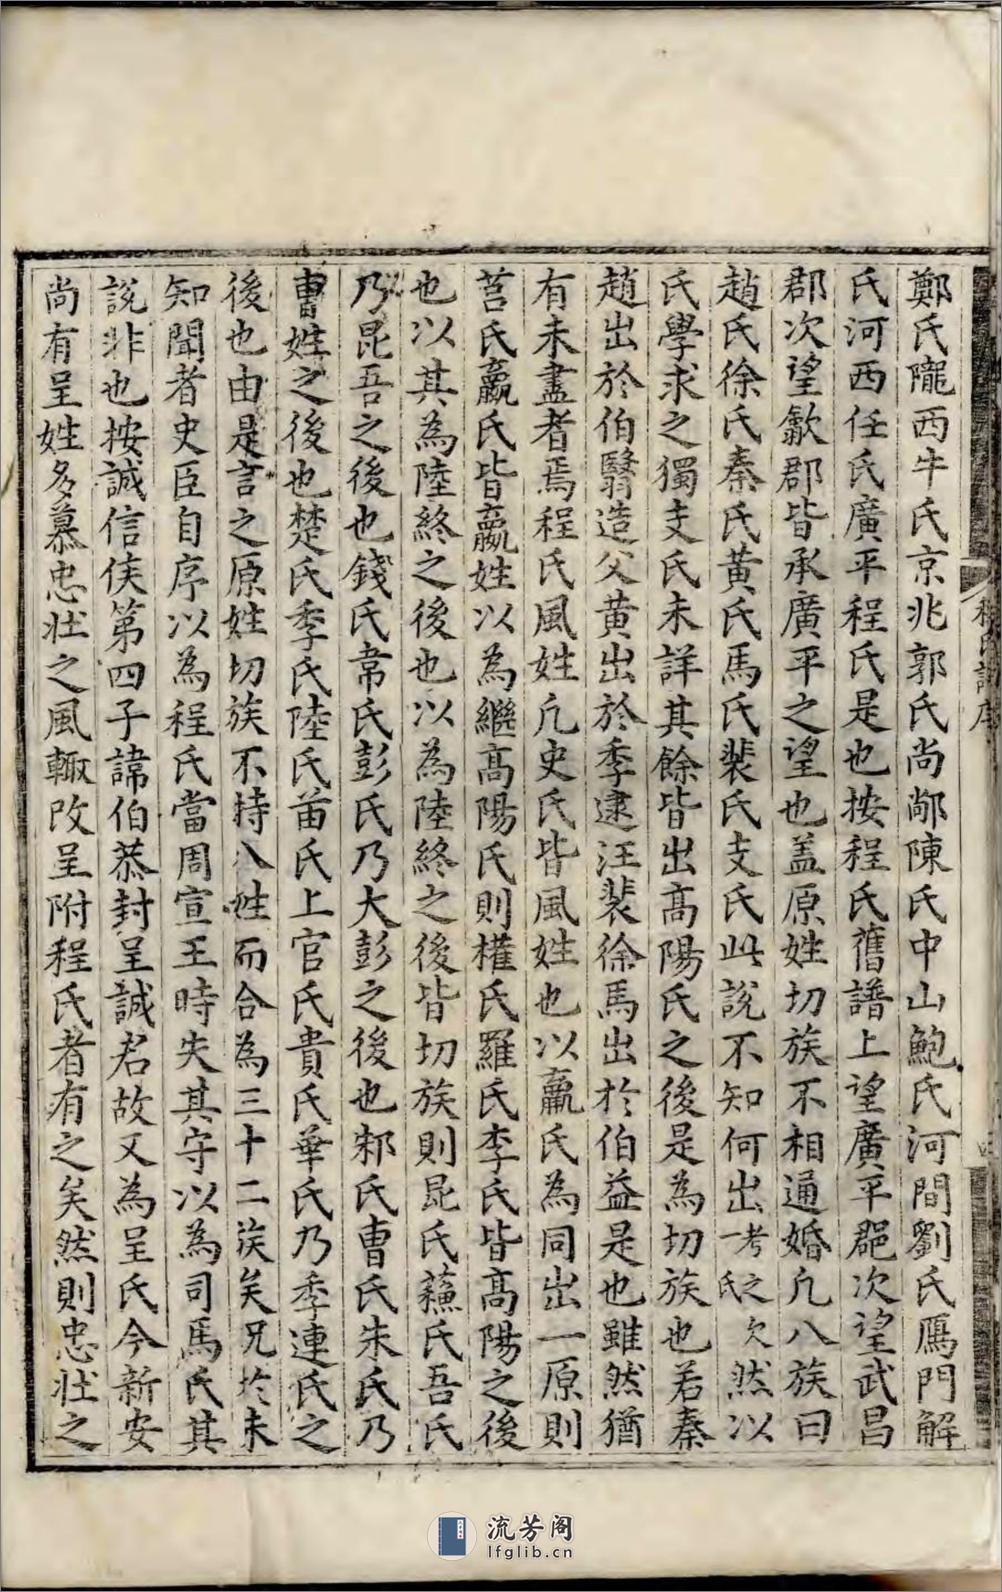 鄭氏隴西牛氏京兆郭氏尚鄅陳氏中山鮑氏河間劉氏鴈門解
氏河西任氏廣平程氏是也按程氏舊譜上望廣平郡次望武昌
郡次望歙郡皆承廣平之望也盖原姓切族不相通婚凡八族曰
趙氏徐氏秦氏黃氏馬氏裴氏支氏此說不知何出一考之氏欠然以
氏學求之獨支氏未詳其餘皆出高陽氏之後是為切族也若秦
趙出於伯翳造父黃出於季逮汪裴徐馬出於伯益是也雖然猶
有未盡者焉程氏風姓凡史氏皆風姓也以嬴氏為同出一原則
莒氏嬴氏皆嬴姓以為繼高陽氏則權氏羅氏李氏皆高陽之後
也以其為陸終之後也以為陸終之後皆切族則昆氏蘓氏吾氏
乃昆吾之後也錢氏韋氏彭氏乃大彭之後也邾氏曹氏朱氏乃
曹姓之後也楚氏季氏陸氏苗氏上官氏賁氏華氏乃季連氏之
後也由是言之原姓切族不持八姓而合為三十二族矣兄扵未
知聞者史臣自序以為程氏當周宣王時失其守以為司馬氏其
說非也按誠信矦第四子諱伯恭封呈誠君故又為呈氏今新安
尚有呈姓多慕忠壯之風輙改呈附程氏者有之矣然則忠壯之
程氏譜序
流芳阁
lfglib.cn